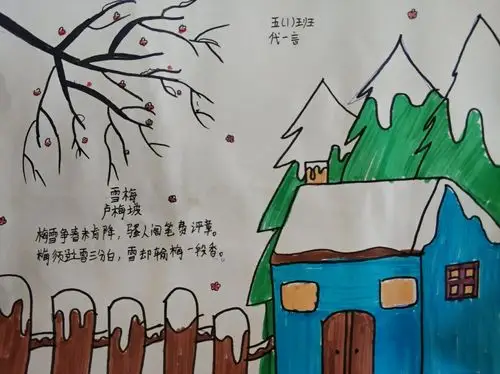 五(1)班班
代一言
雪梅
卢梅坡
梅雪争春未肯降，骚人阁笔费评章。
梅须逊雪三分白，雪却输梅一段香。